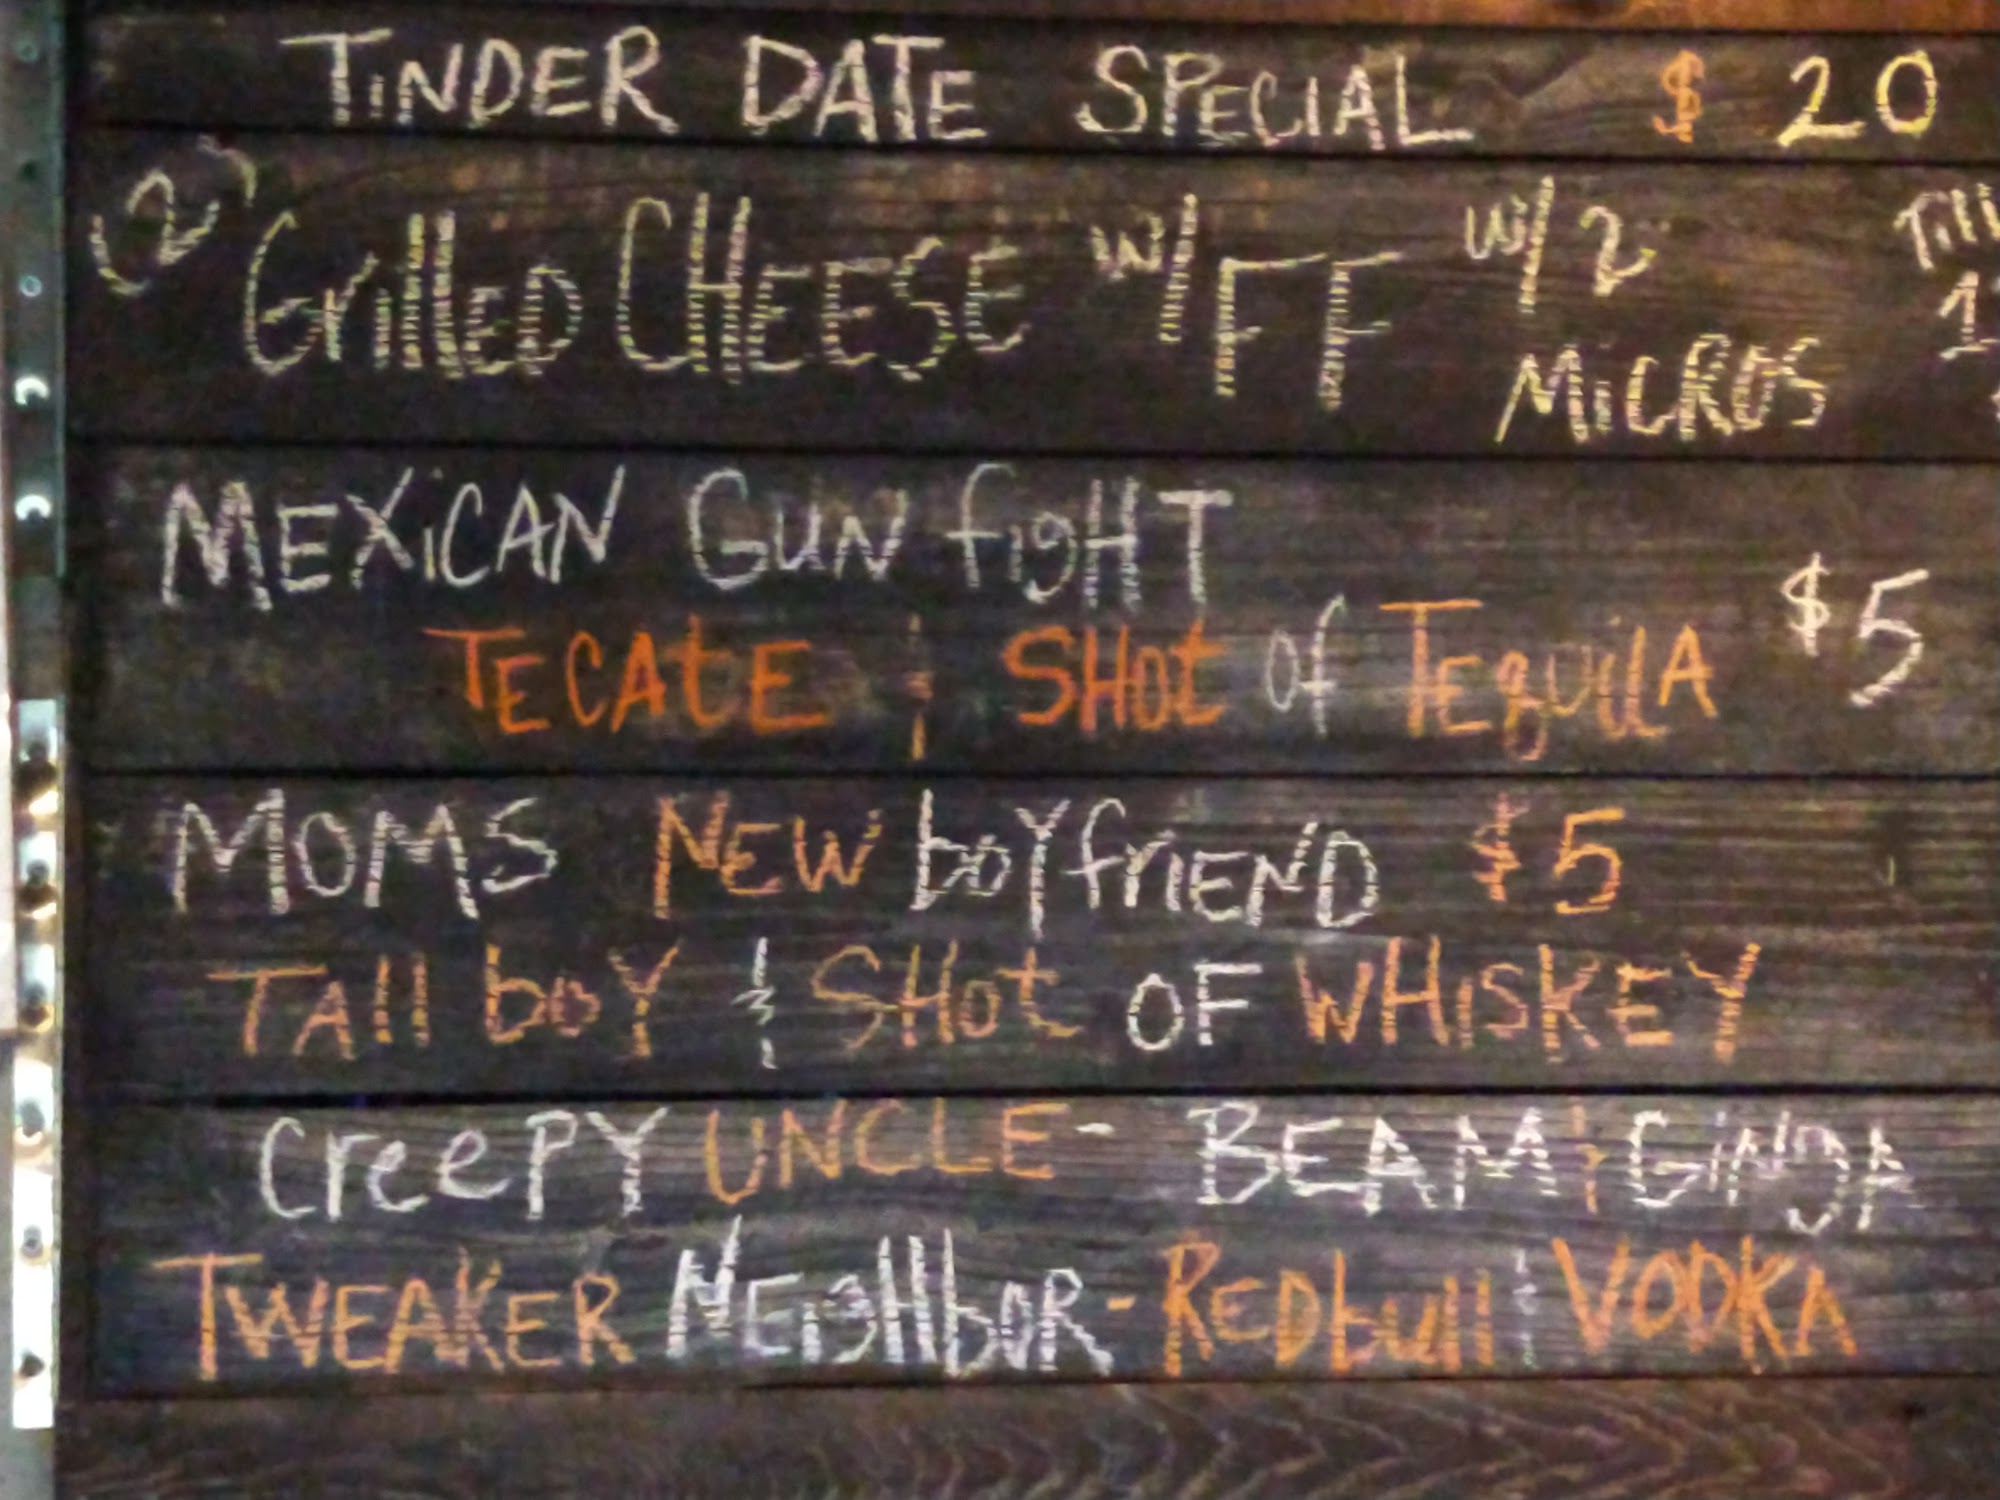 TiNDER DATE SPECIAL $ 20
(2) GrillED CHEESE w/ FF w/ 2 MiCROS
MEXiCAN GUN figHT
TECAtE & SHOt of TEquilA $5
MOMS NEW boYfriEND $5
TAll boY & SHot OF WHiSKEY
CreePY UNCLE - BEAM & GiNgA
TWEAKER NEigHboR - REDbull & VODKA